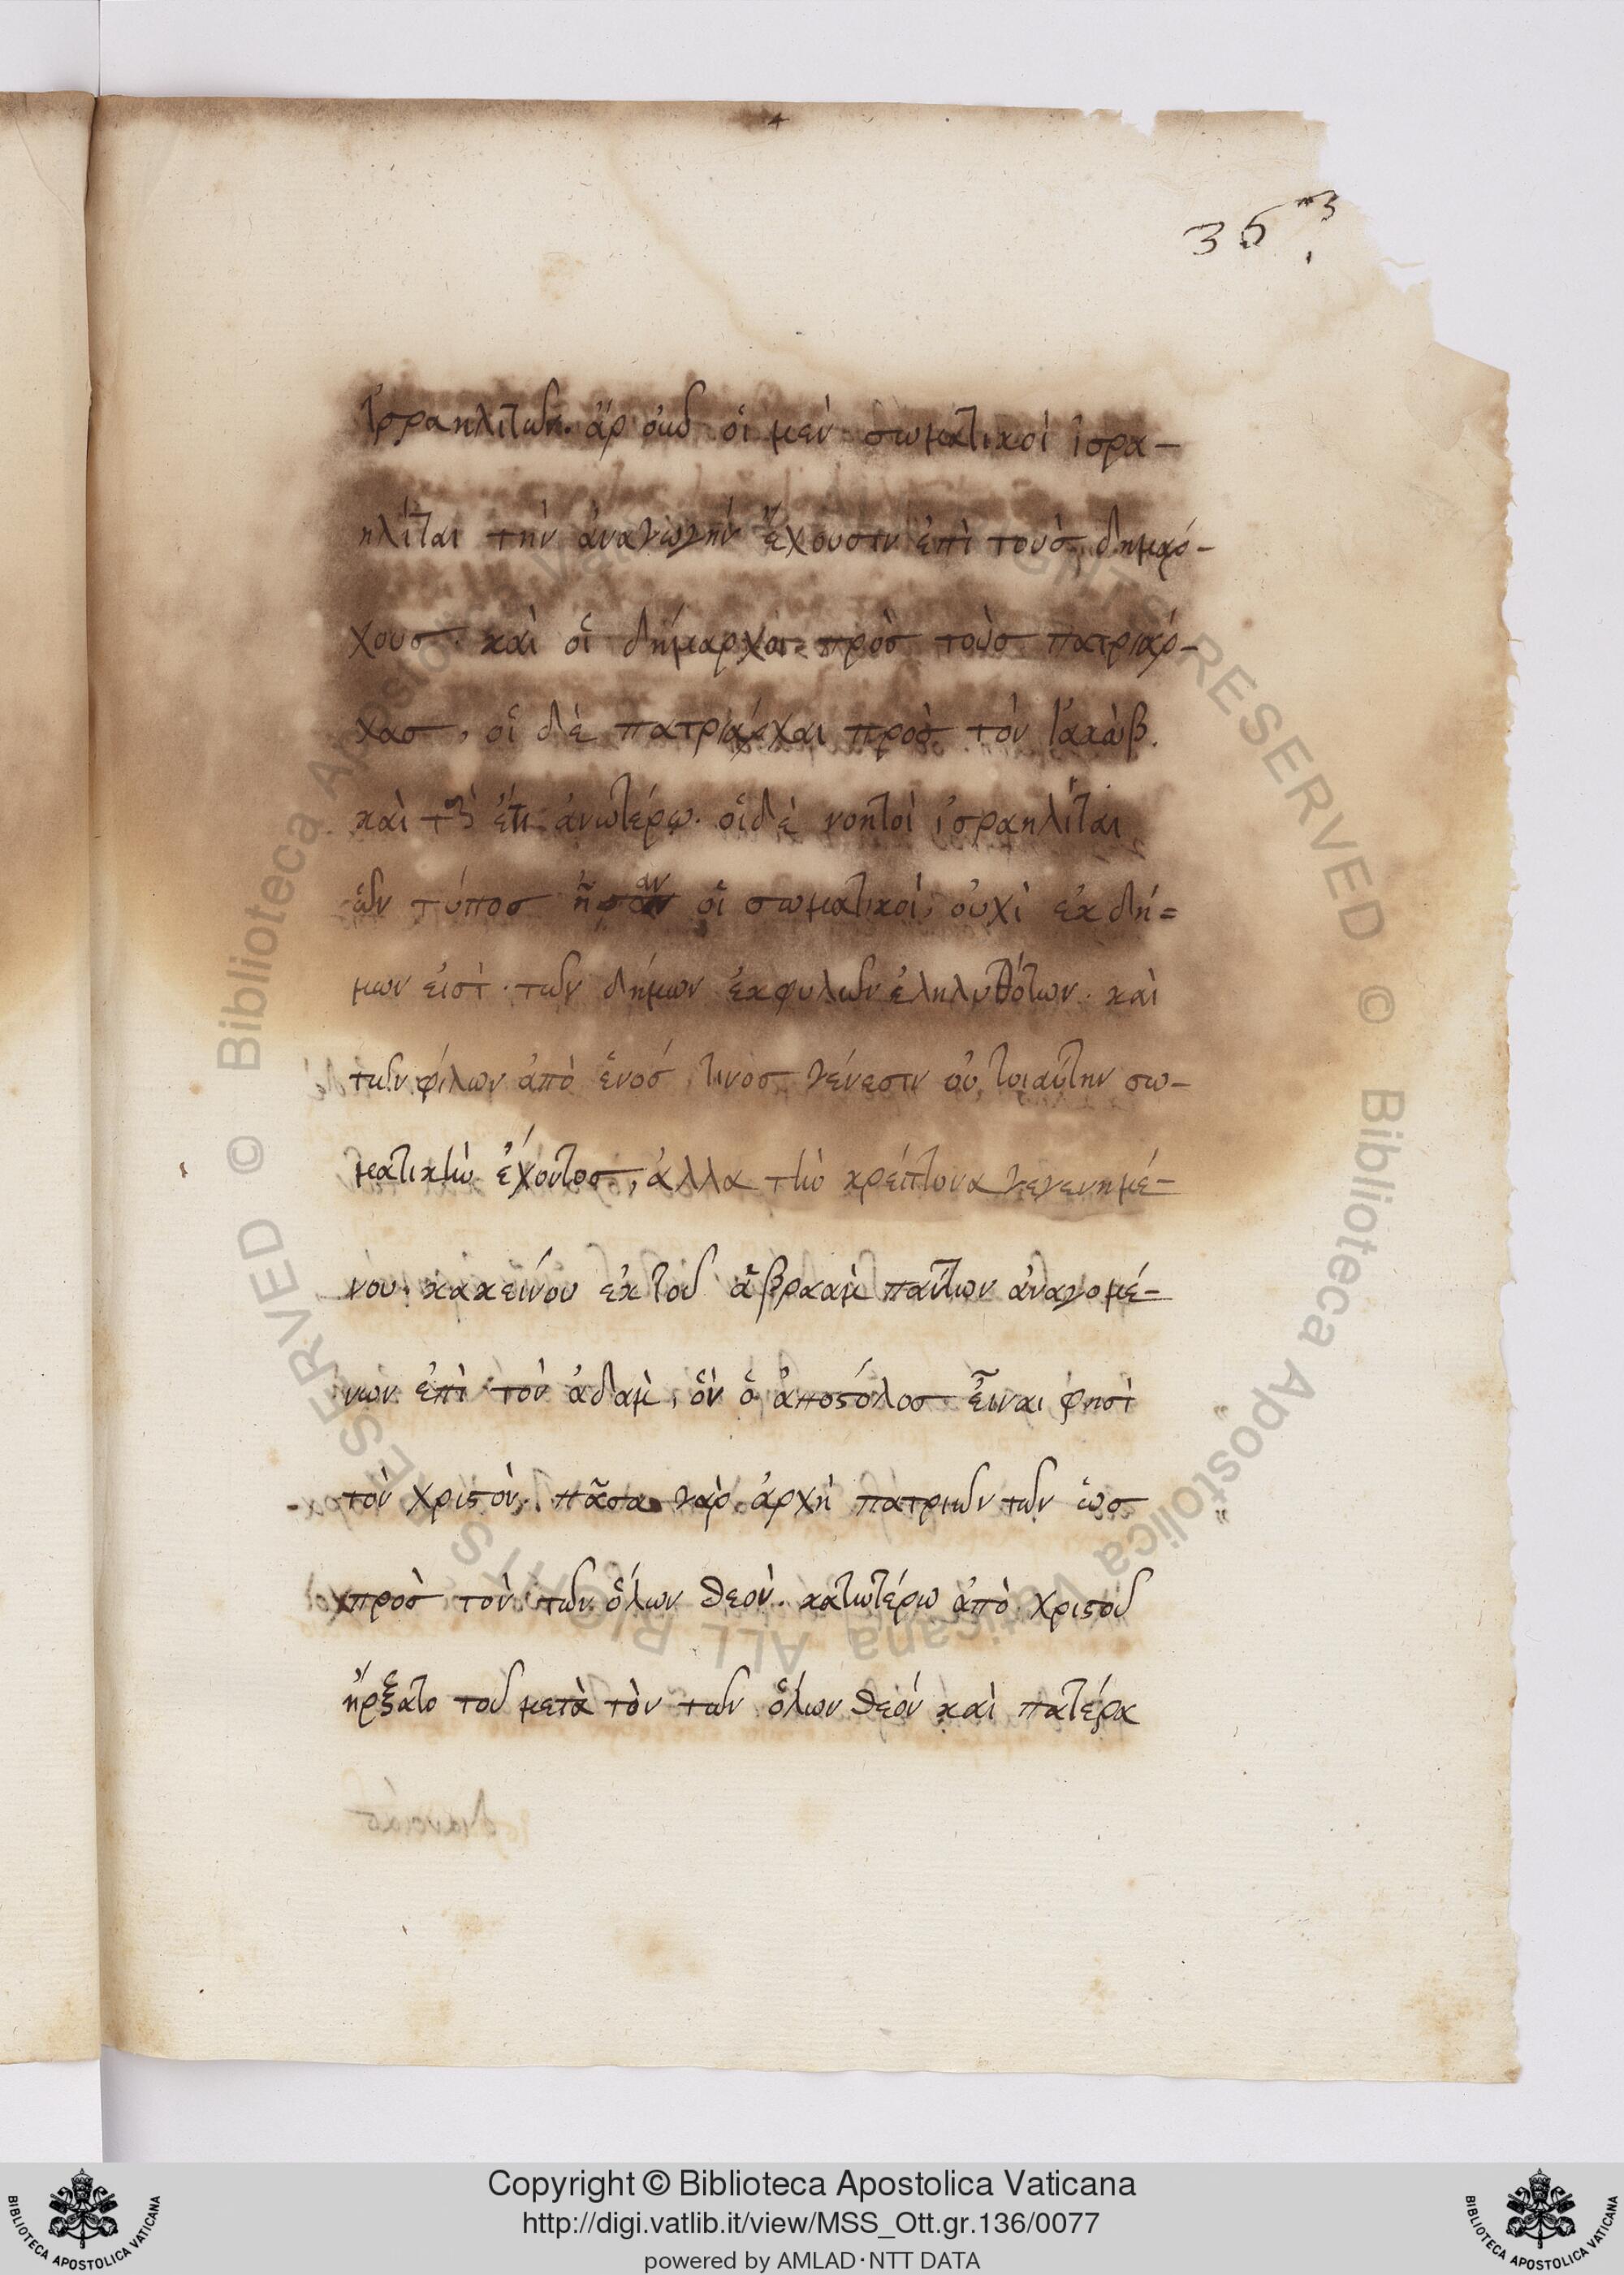 353
ἰσραηλιτῶν. ἆρ οὖν οἱ μὲν σωματικοὶ ἰσρα-
ηλῖται τὴν ἀναγωγὴν ἔχουσιν ἐπὶ τοὺσ δημάρ-
χουσ. καὶ οἱ δήμαρχοι πρὸσ τοὺσ πατριάρ-
χασ, οἱ δὲ πατριάρχαι πρὸσ τὸν Ἰακὼβ.
καὶ ἔτι ἀνωτέρω. οἱ δὲ νοητοὶ ἰσραηλῖται
ὧν τύποσ ἦσαν οἱ σωματικοὶ, οὐχὶ ἐκ δή=
μων εἰσὶ. τῶν δήμων ἐκ φυλῶν ἐληλυθότων. καὶ
τῶν φίλων ἀπὸ ἑνόσ τινοσ γένεσιν οὐ τοιαύτην σω-
ματικὴν ἔχοντοσ, ἀλλὰ τὴν κρείττονα γεγενημέ-
νου. κακείνου ἐκ τοῦ ἀβρααμ πάντων ἀναγομέ-
νων ἐπὶ τὸν ἀδαμ, ὃν ὁ ἀποστόλοσ εἶναι φησὶ
τὸν χριστὸν. πᾶσα γὰρ ἀρχὴ πατριῶν τῶν ὡσ
πρὸσ τὸν τῶν ὅλων θεὸν. κατωτέρω ἀπὸ χριστοῦ
ἤρξατο τοῦ μετὰ τὸν τῶν ὅλων θεὸν καὶ πατέρα
Copyright © Biblioteca Apostolica Vaticana
http://digi.vatlib.it/view/MSS_Ott.gr.136/0077
powered by AMLAD·NTT DATA
© Biblioteca Apostolica Vaticana ALL RIGHTS RESERVED
BIBLIOTECA APOSTOLICA VATICANA
BIBLIOTECA APOSTOLICA VATICANA